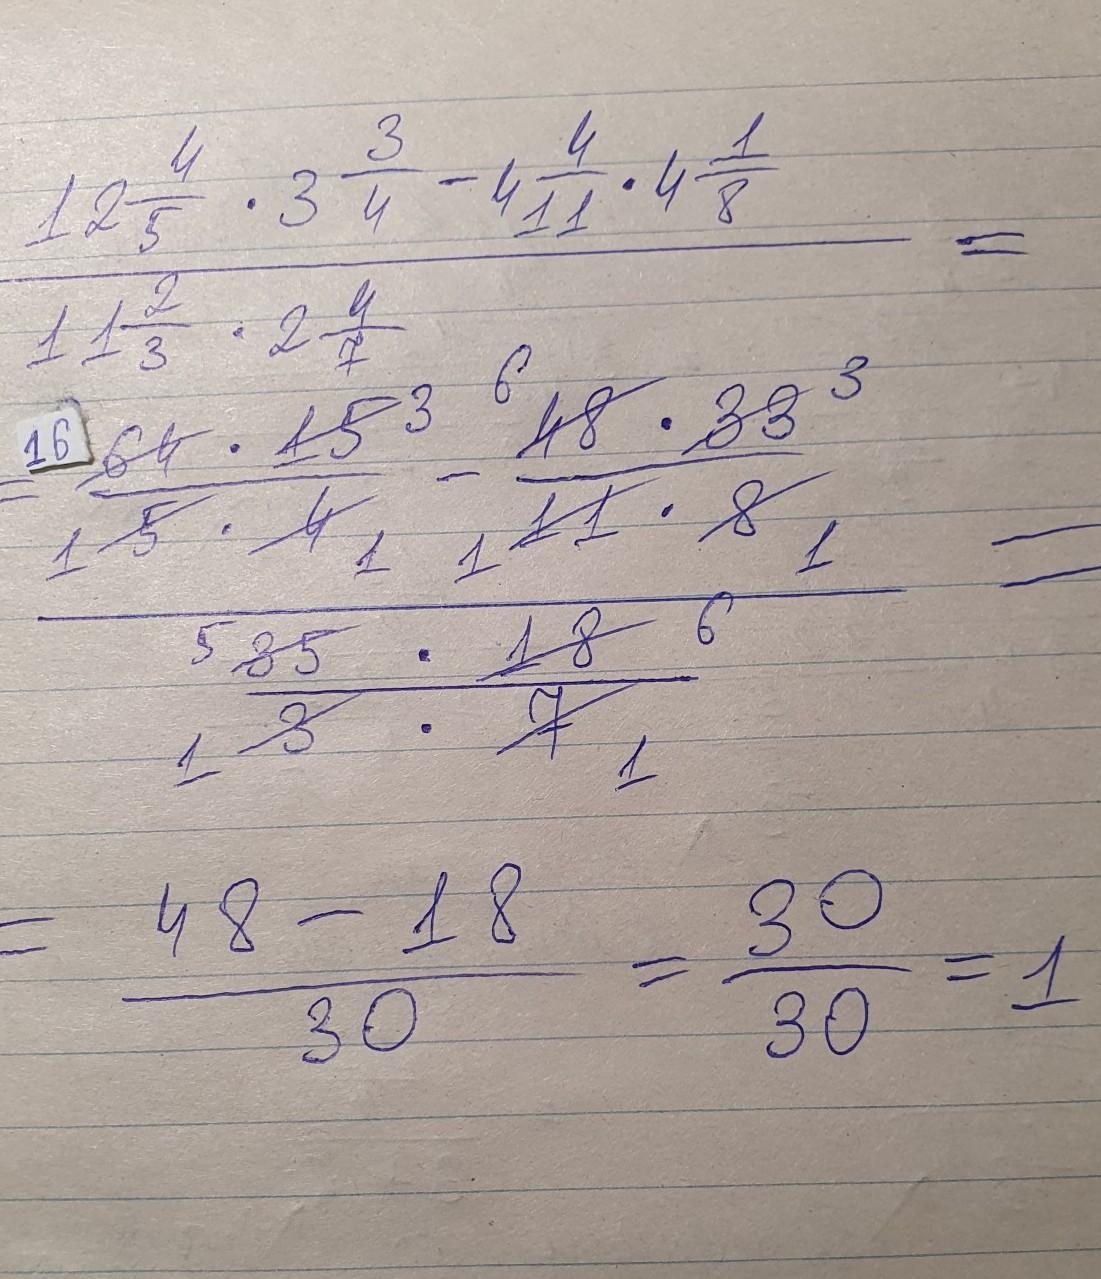 12 4/5 · 3 3/4 - 4 4/11 · 4 1/8
=
11 2/3 · 2 4/7
16 64 · 15 3 - 6 48 · 33 3
=
1 5 · 4 1 1 11 · 8 1
=
5 35 · 18 6
1 3 · 7 1
= 48 - 18 / 30 = 30 / 30 = 1